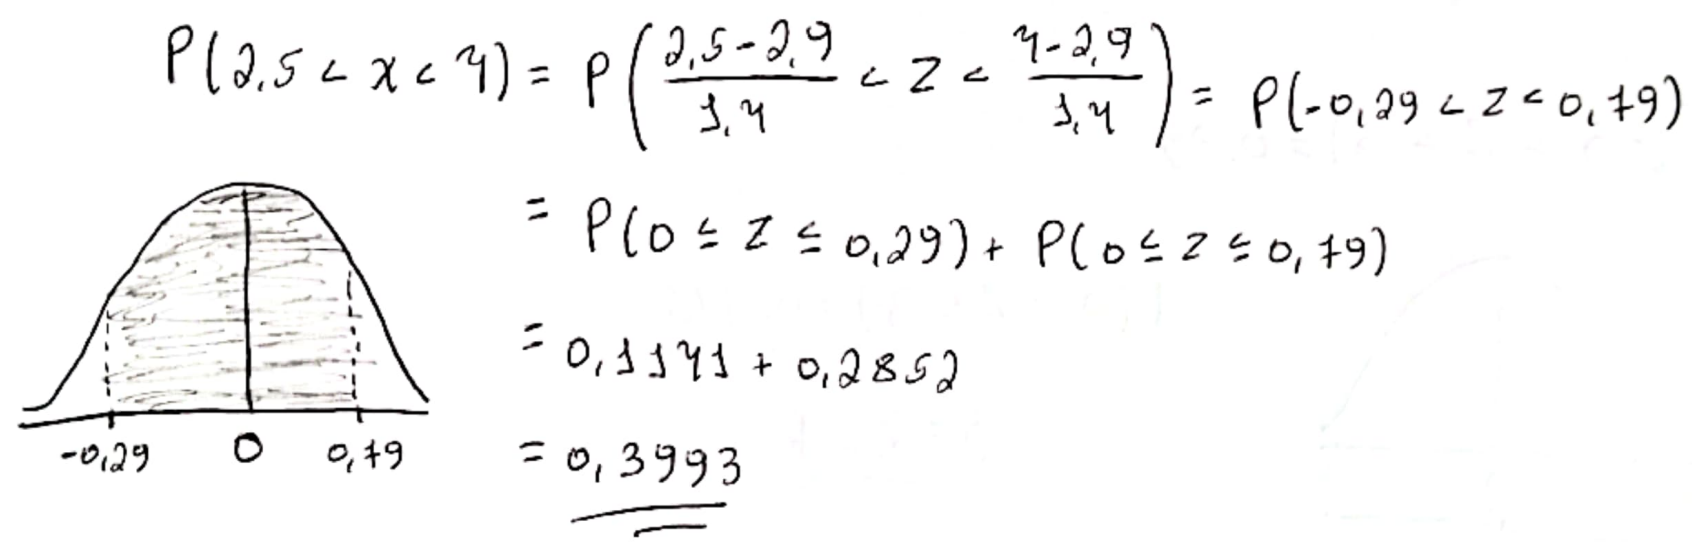 P(2,5 < x < 4) = P((2,5-2,9)/1,4 < Z < (4-2,9)/1,4) = P(-0,29 < Z < 0,79)
= P(0 ≤ Z ≤ 0,29) + P(0 ≤ Z ≤ 0,79)
= 0,1141 + 0,2852
= 0,3993
-0,29 0 0,79